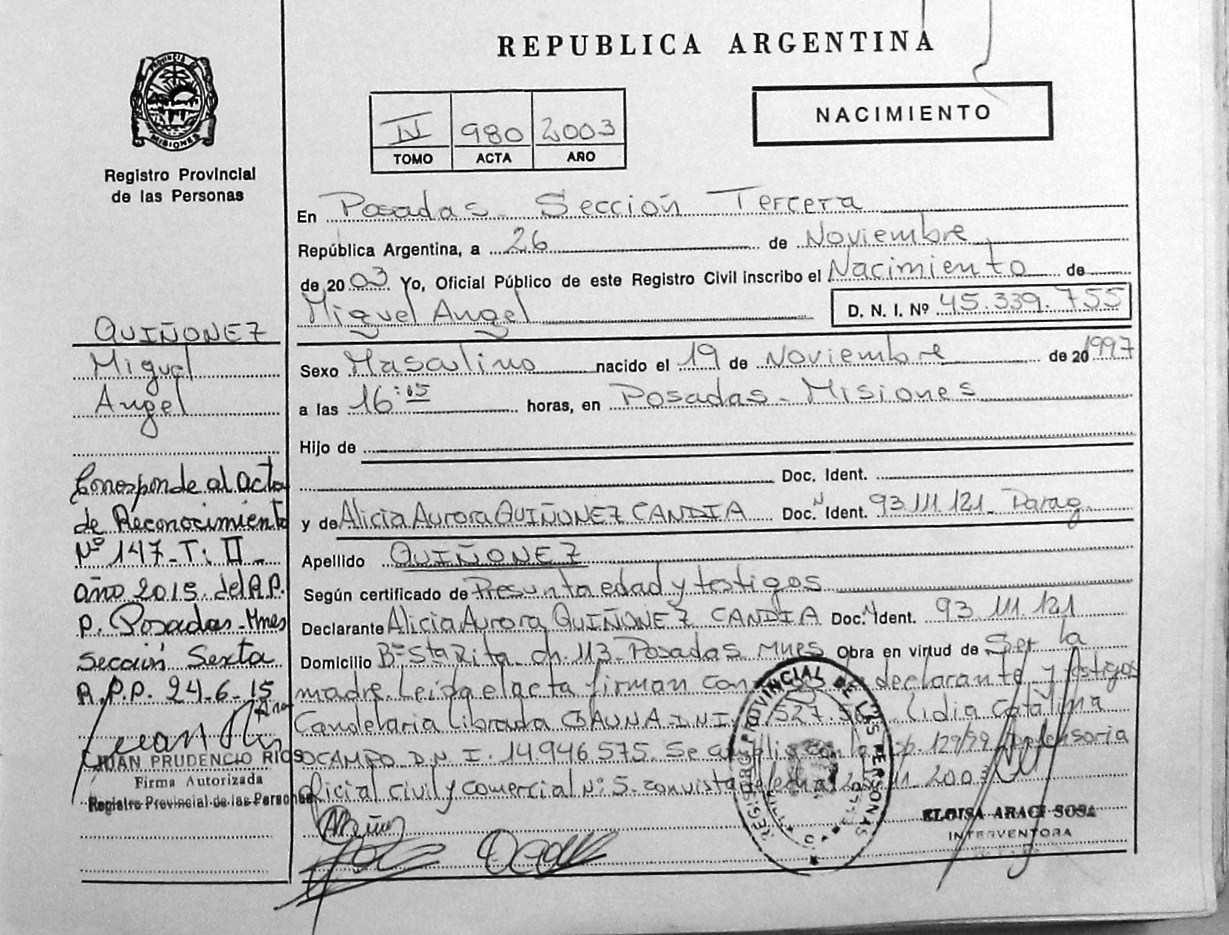 REPUBLICA ARGENTINA
PROVINCIA DE MISIONES
Registro Provincial
de las Personas
II 980 2003
TOMO ACTA AÑO
NACIMIENTO
En Posadas - Sección Tercera
República Argentina, a 26 de Noviembre
de 2003 Yo, Oficial Público de este Registro Civil inscribo el Nacimiento de
Miguel Angel D. N. I. Nº 45.339.755
Sexo Masculino nacido el 19 de Noviembre de 20 1997
a las 16:15 horas, en Posadas - Misiones
Hijo de
Doc. Ident.
y de Alicia Aurora QUIÑONEZ CANDIA Doc. N Ident. 93.111.121 - Parag.
Apellido QUIÑONEZ
Según certificado de Presunta edad y testigos
Declarante Alicia Aurora QUIÑONEZ CANDIA Doc. N Ident. 93.111.121
Domicilio Bº Sta Rita ch. 113 - Posadas Mnes Obra en virtud de Ser la
madre. Leida el acta firman con declarante y testigos
Candelaria Librada D.N.I. 527. Lidia Catalina
OCAMPO D.N.I. 14.946.575. Se con la 129/99 Defensoria
oficial civil y comercial Nº 5. con vista de fecha 2003
REGISTRO PROVINCIAL DE LAS PERSONAS
ELOISA ARACI SOSA
INTERVENTORA
QUIÑONEZ
Miguel
Angel
Corresponde al acta
de Reconocimiento
Nº 147 - T: II -
año 2015 del R.P.
P. Posadas - Mnes
Sección Sexta
R.P.P. 24-6-15
JUAN PRUDENCIO RIOS
Firma Autorizada
Registro Provincial de las Personas